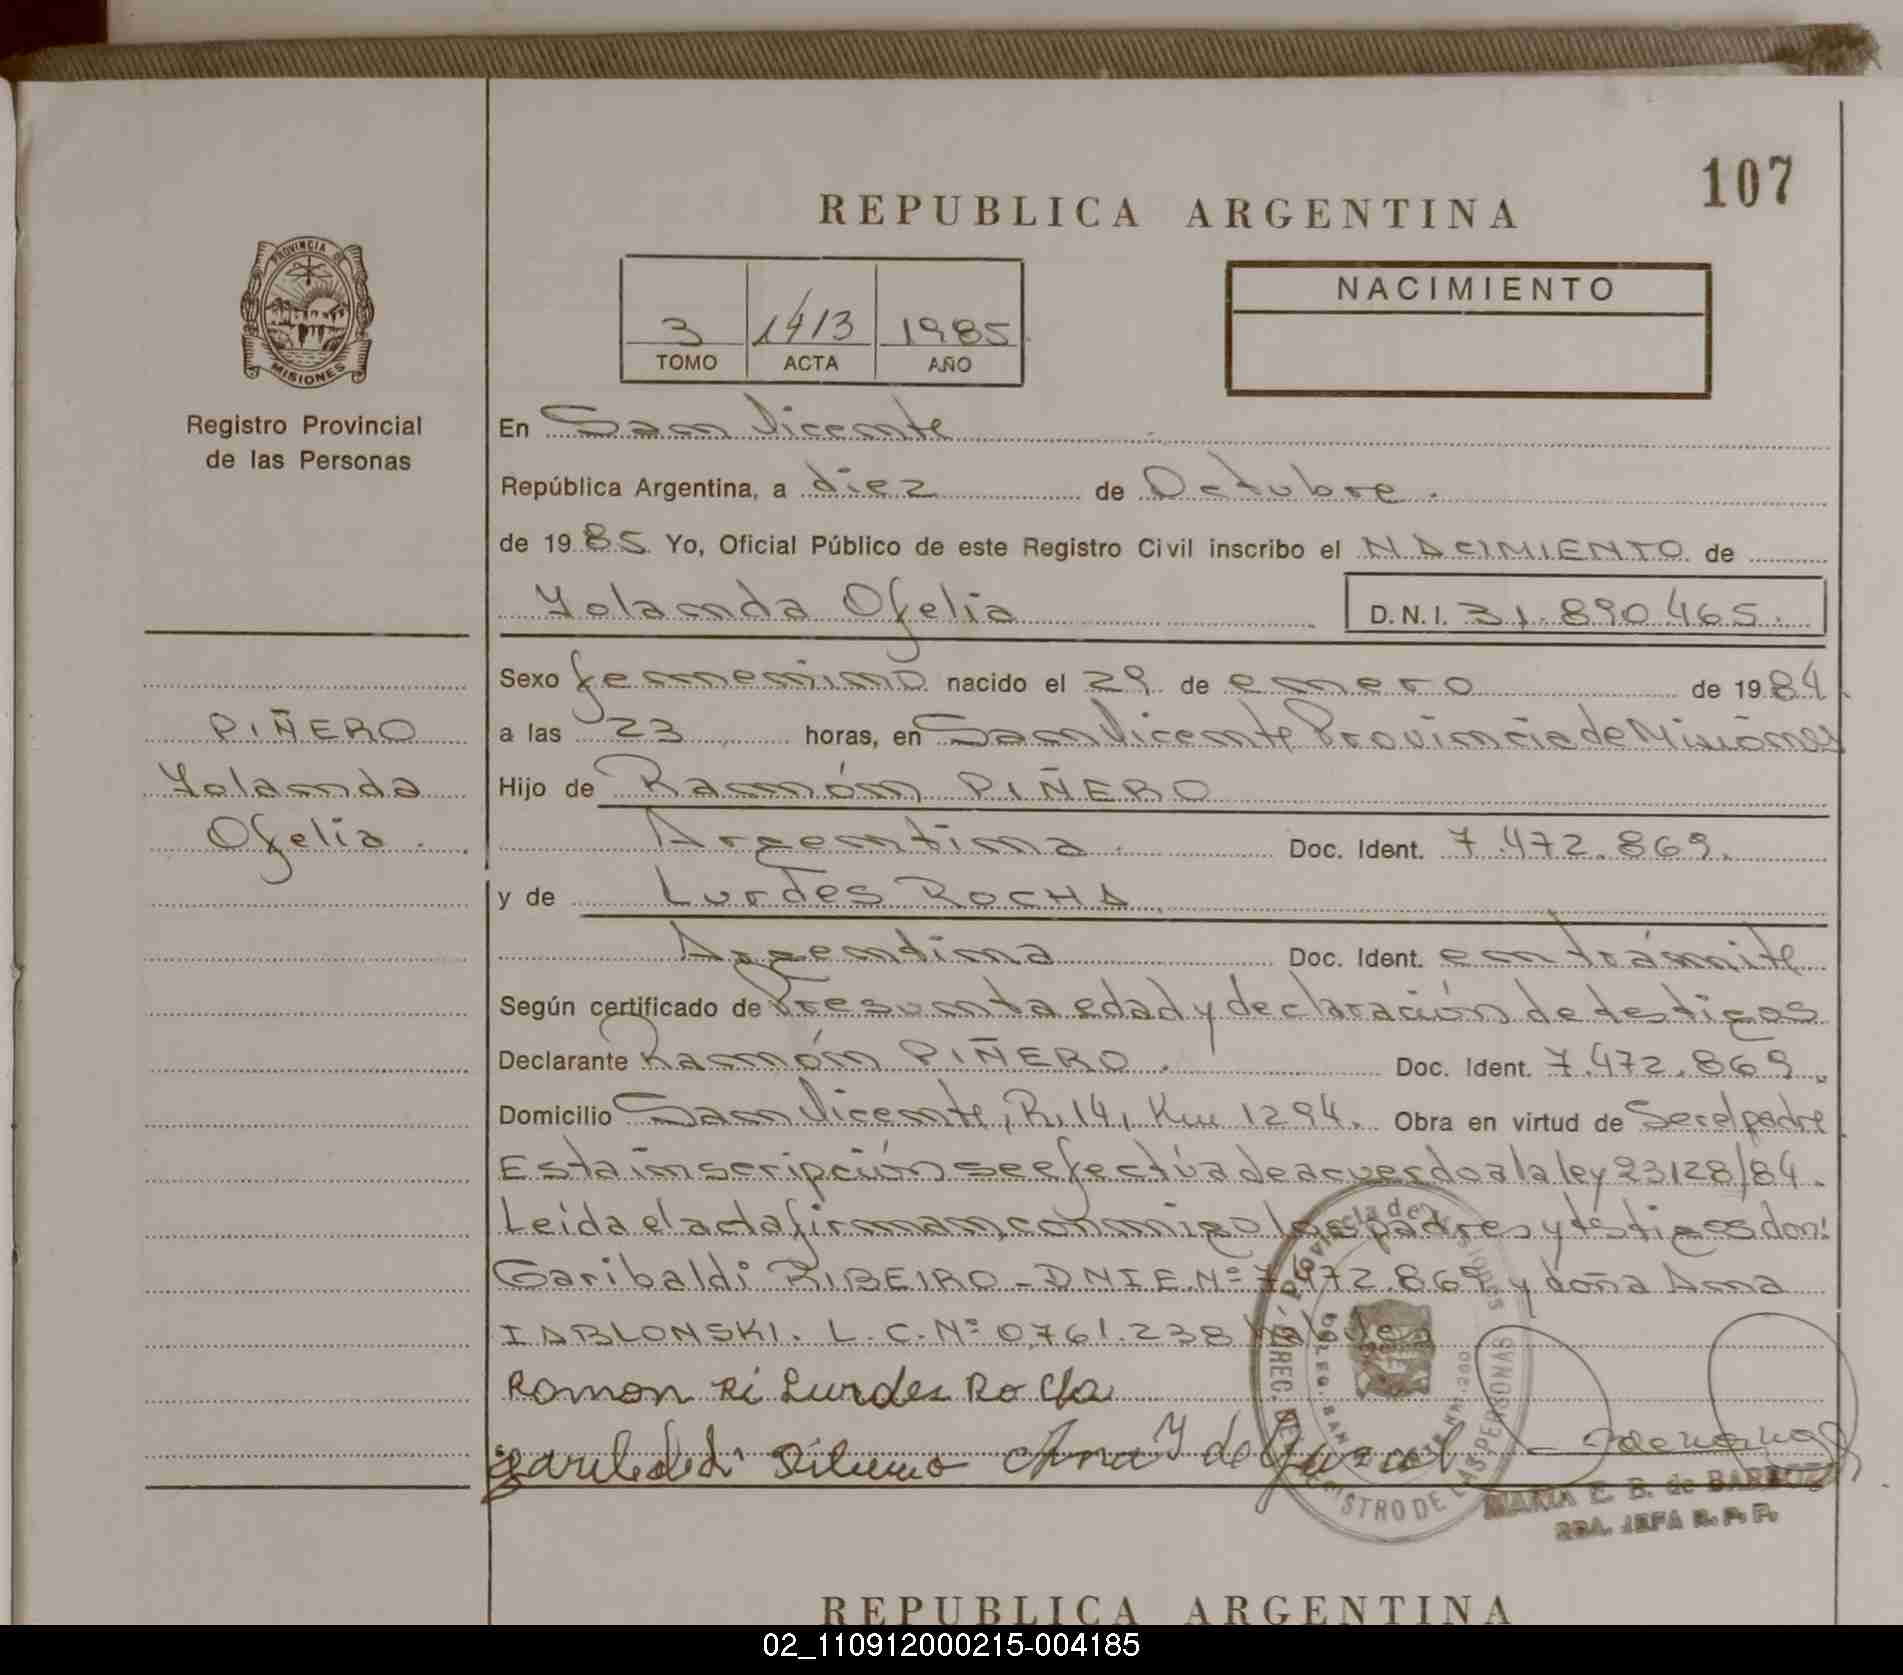 107
REPUBLICA ARGENTINA
PROVINCIA DE
MISIONES
Registro Provincial
de las Personas
3 1413 1985
TOMO ACTA AÑO
NACIMIENTO
En San Vicente
República Argentina, a diez de Octubre.
de 1985 Yo, Oficial Público de este Registro Civil inscribo el NACIMIENTO de
Yolanda Ofelia D.N.I. 31.890.465.
Sexo femenino nacido el 29 de enero de 1984.
PIÑERO
Yolanda
Ofelia.
a las 23 horas, en San Vicente Provincia de Misiones
Hijo de Ramón PIÑERO
Argentina. Doc. Ident. 7.472.869.
y de Lurdes ROCHA.
Argentina Doc. Ident. en trámite.
Según certificado de Presunta edad y declaración de testigos
Declarante Ramón PIÑERO. Doc. Ident. 7.472.869.
Domicilio San Vicente, R. 14, Km 1294. Obra en virtud de Ser el padre.
Esta inscripción se efectúa de acuerdo a la ley 23128/84.
Leída el acta firman conmigo los padres y testigos don:
Garibaldi RIBEIRO - DNIE. Nº 7.472.869 y doña Ana
IABLONSKI. L.C. Nº 0.761.238
Ramon Pi Lurdes Rocha
Ana Y de
Provincia de Misiones
DIREC. REGISTRO DE LAS PERSONAS
MARIA E. B. de
SRA. JEFA R. P. P.
REPUBLICA ARGENTINA
02_110912000215-004185